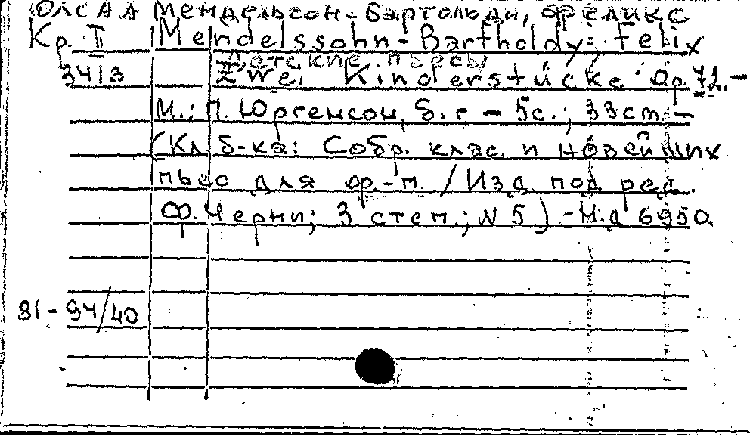 Мендельсон-Бартольди, Феликс
Кр. II Mendelssohn-Bartholdy, Felix
Детские пьесы
3413 Zwei Kinderstücke. Op. 72.-
М.: П. Юргенсон, б.г. - 5с.; 33ст. -
(Кл. б-ка: Собр. клас. и новейших
пьес для ф.-п. / Изд. под ред.
Ф. Черни; 3 степ.; N 5) - Н.д. 6950.
81-94/40